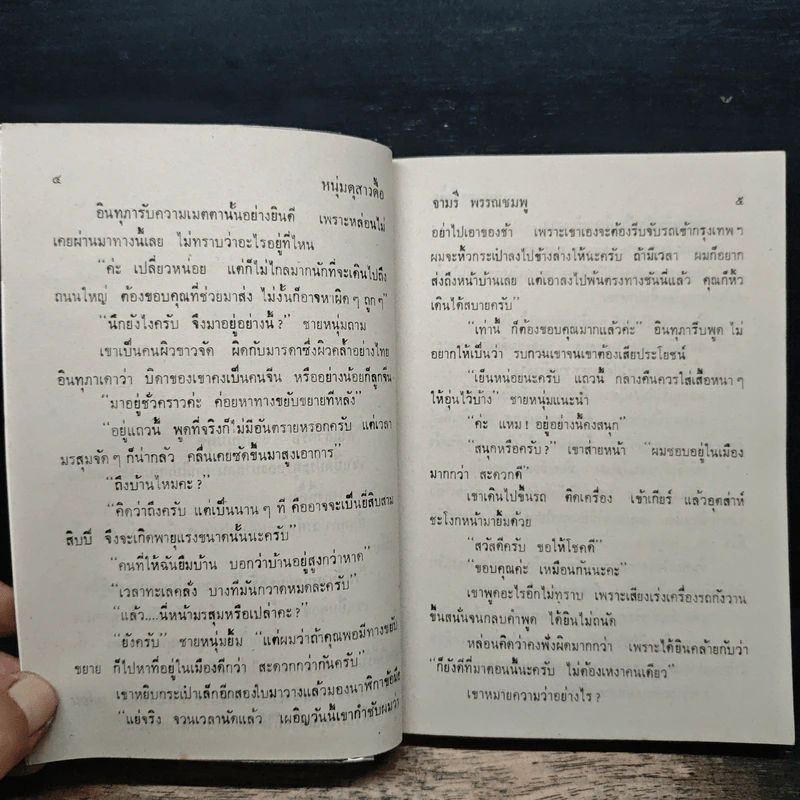 ๔
หนุ่มดุสาวดื้อ
อินทุภารับความเมตตานั้นอย่างยินดี เพราะหล่อนไม่
เคยผ่านมาทางนี้เลย ไม่ทราบว่าอะไรอยู่ที่ไหน
“ค่ะ เปลี่ยวหน่อย แต่ก็ไม่ไกลมากนักที่จะเดินไปถึง
ถนนใหญ่ ต้องขอบคุณที่ช่วยมาส่ง ไม่งั้นก็อาจหาผิด ๆ ถูก ๆ”
“นึกยังไงครับ จึงมาอยู่อย่างนี้?” ชายหนุ่มถาม
เขาเป็นคนผิวขาวจัด ผิดกับมารดาซึ่งผิวคล้ำอย่างไทย
อินทุภาเดาว่า บิดาของเขาคงเป็นคนจีน หรืออย่างน้อยก็ลูกจีน
“มาอยู่ชั่วคราวค่ะ ค่อยหาทางขยับขยายทีหลัง”
“อยู่แถวนี้ พูดที่จริงก็ไม่มีอันตรายหรอกครับ แต่เวลา
มรสุมจัด ๆ ก็น่ากลัว คลื่นเคยซัดขึ้นมาสูงเอาการ”
“ถึงบ้านไหมคะ?”
“คิดว่าถึงครับ แต่เป็นนาน ๆ ที คืออาจจะเป็นยี่สิบสาม
สิบปี จึงจะเกิดพายุแรงขนาดนั้นนะครับ”
“คนที่ให้ฉันยืมบ้าน บอกว่าบ้านอยู่สูงกว่าหาด”
“เวลาทะเลคลั่ง บางทีมันกวาดหมดละครับ”
“แล้ว....นี่หน้ามรสุมหรือเปล่าคะ?”
“ยังครับ” ชายหนุ่มยิ้ม “แต่ผมว่าถ้าคุณพอมีทางขยับ
ขยาย ก็ไปหาที่อยู่ในเมืองดีกว่า สะดวกกว่ากันครับ”
เขาหยิบกระเป๋าเล็กอีกสองใบมาวางแล้วมองนาฬิกาข้อมือ
“แย่จริง จวนเวลานัดแล้ว เผอิญวันนี้เขากำชับผมว่า
จามรี พรรณชมพู
๕
อย่าไปเอาของช้า เพราะเขาเองจะต้องรีบจับรถเข้ากรุงเทพ ฯ
ผมจะหิ้วกระเป๋าลงไปข้างล่างให้นะครับ ถ้ามีเวลา ผมก็อยาก
ส่งถึงหน้าบ้านเลย แต่เอาลงไปพ้นตรงทางชันนี้แล้ว คุณก็หิ้ว
เดินได้สบายครับ”
“เท่านี้ ก็ต้องขอบคุณมากแล้วค่ะ” อินทุภารีบพูด ไม่
อยากให้เป็นว่า รบกวนเขาจนเขาต้องเสียประโยชน์
“เย็นหน่อยนะครับ แถวนี้ กลางคืนควรใส่เสื้อหนา ๆ
ให้อุ่นไว้บ้าง” ชายหนุ่มแนะนำ
“ค่ะ แหม! อยู่อย่างนี้คงสนุก”
“สนุกหรือครับ?” เขาส่ายหน้า “ผมชอบอยู่ในเมือง
มากกว่า สะดวกดี”
เขาเดินไปขึ้นรถ ติดเครื่อง เข้าเกียร์ แล้วอุตส่าห์
ชะโงกหน้ามายิ้มด้วย
“สวัสดีครับ ขอให้โชคดี”
“ขอบคุณค่ะ เหมือนกันนะคะ”
เขาพูดอะไรอีกไม่ทราบ เพราะเสียงเร่งเครื่องรถกังวาน
ขึ้นสนั่นจนกลบคำพูด ได้ยินไม่ถนัด
หล่อนคิดว่าคงฟังผิดมากกว่า เพราะได้ยินคล้ายกับว่า
“ก็ยังดีที่มาตอนนี้นะครับ ไม่ต้องเหงาคนเดียว”
เขาหมายความว่าอย่างไร?